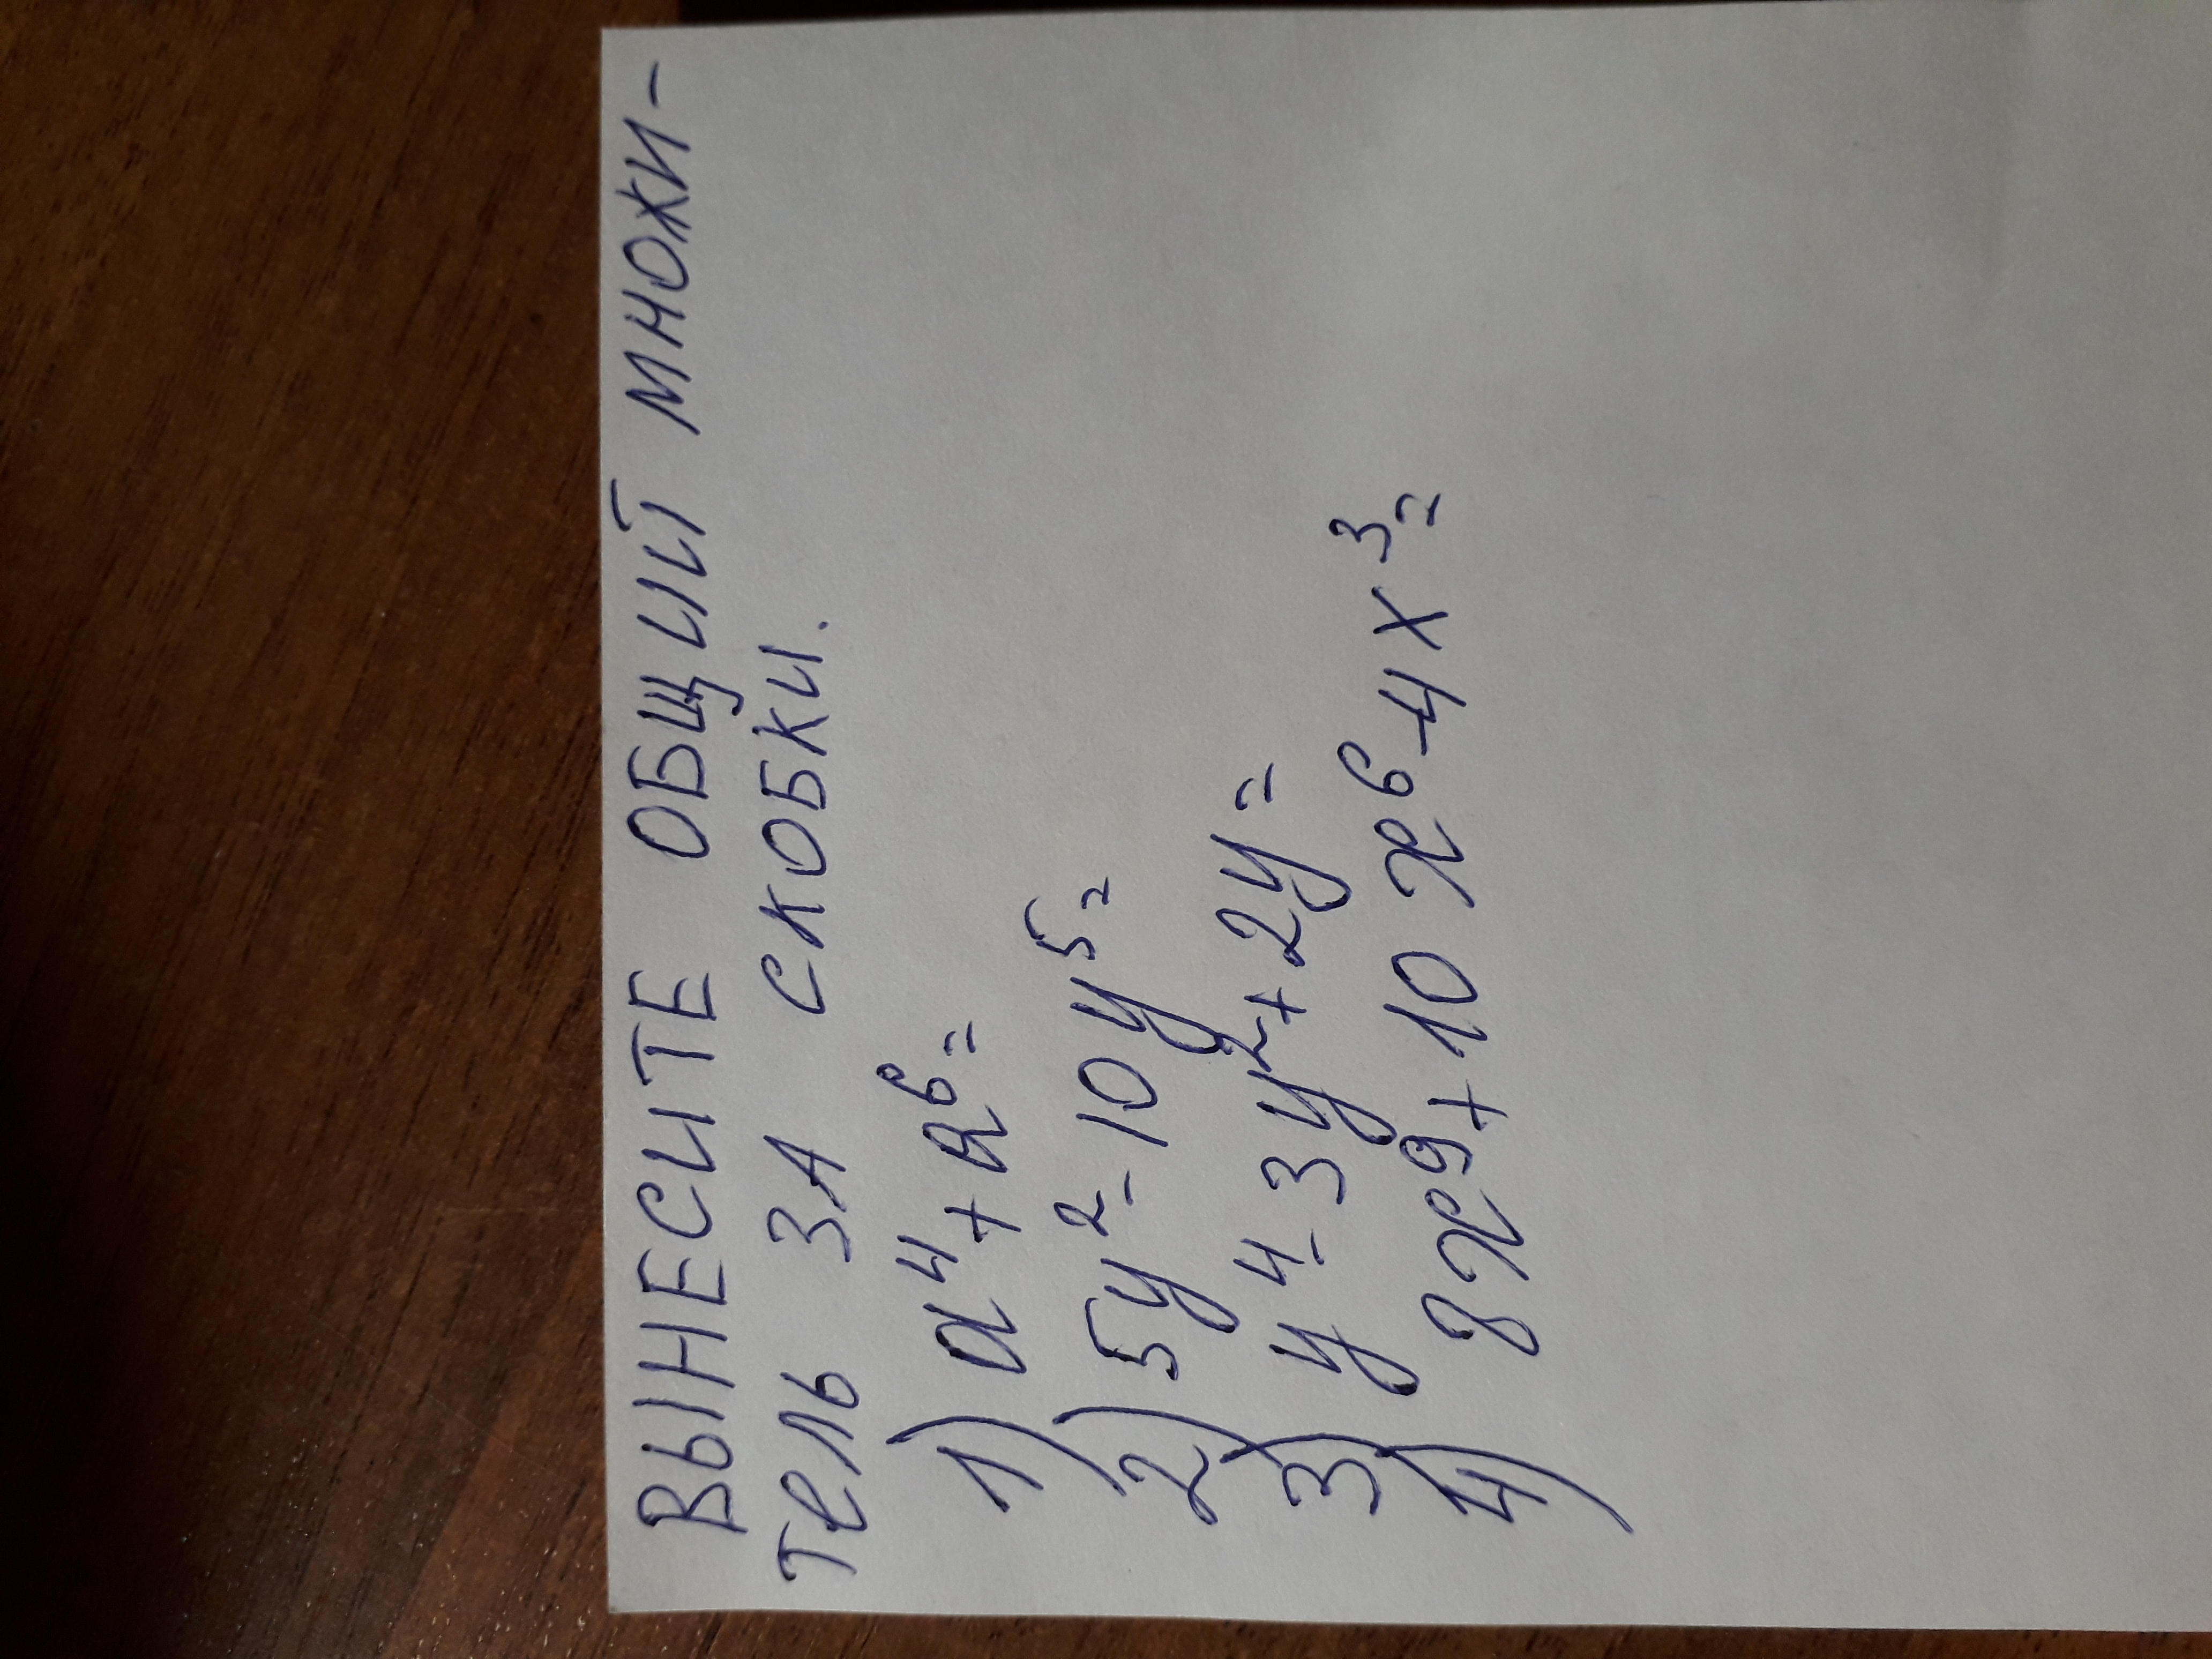 ВЫНЕСИТЕ ОБЩИЙ МНОЖИ-
ТЕЛЬ ЗА СКОБКИ.
1) a⁴+a⁶=
2) 5y²-10y⁵=
3) y⁴-3y²+2y=
4) 8x⁹+10x⁶-4x³=